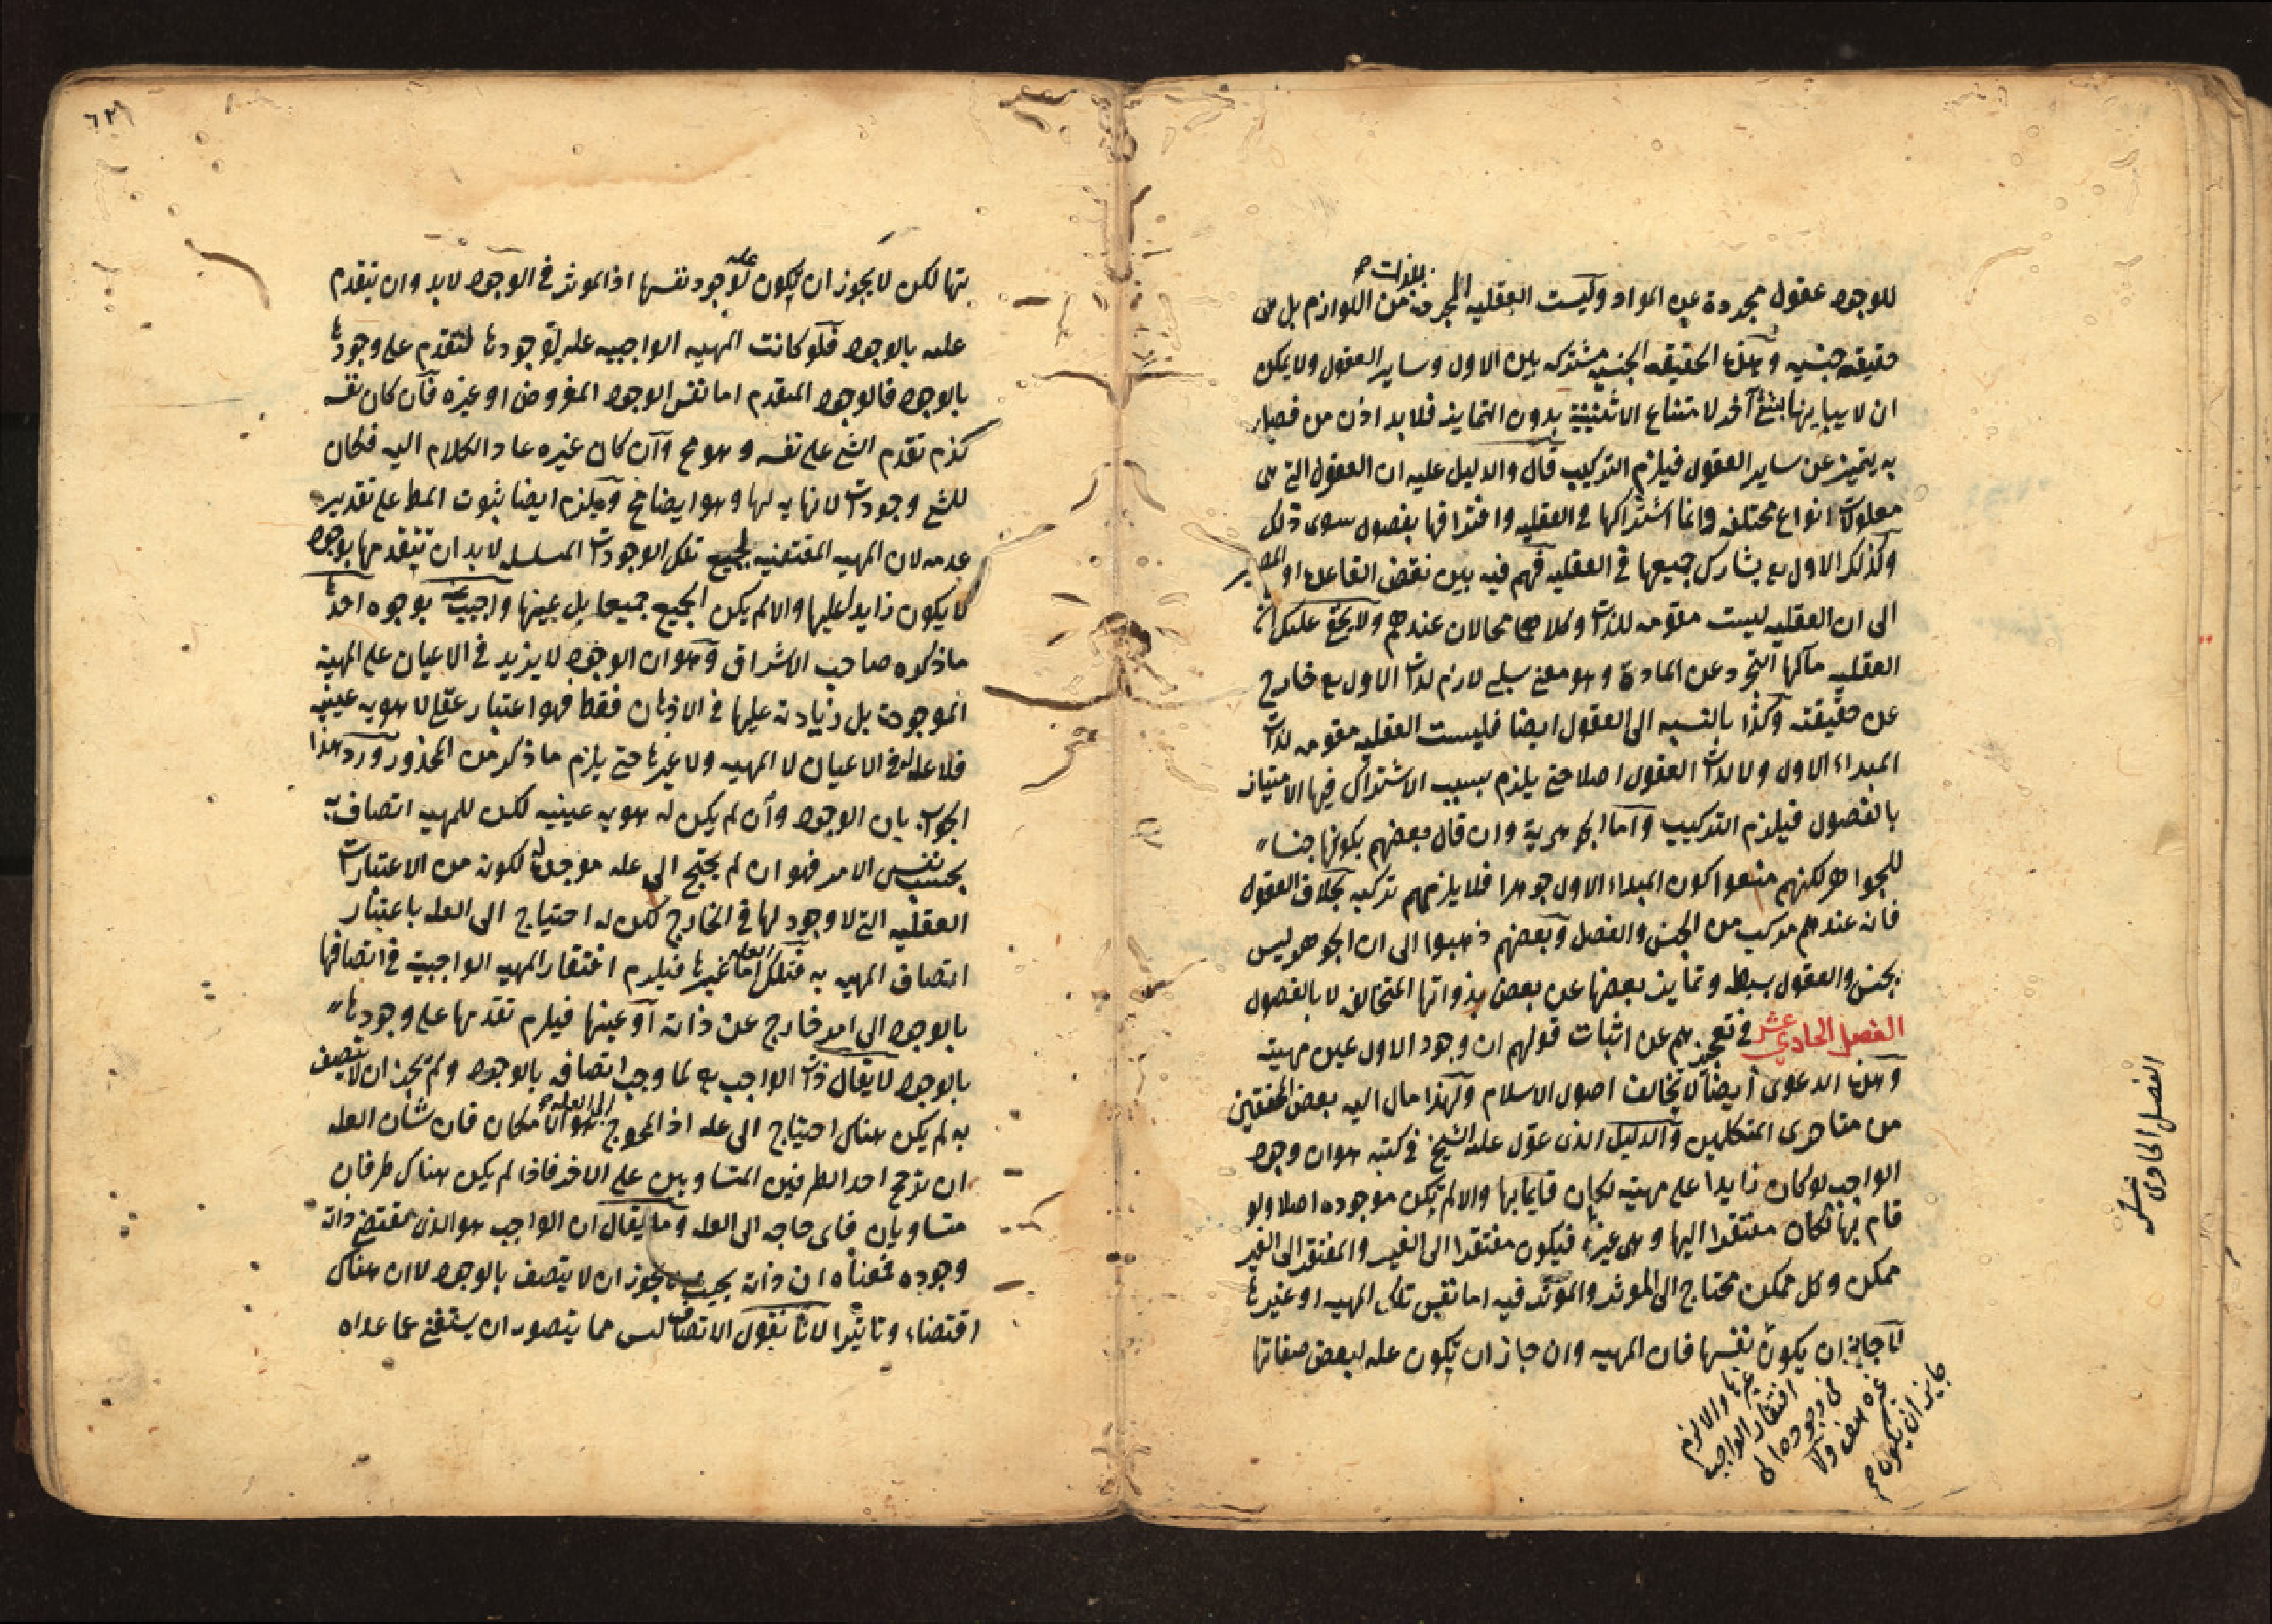 للوجود عقول مجردة عن المواد وليست العقلية المجردة من اللوازم بل هى
بالذات صح
حقيقة جنسيه وهذه الحقيقه الجنسيه مشتركه بين الاول وساير العقول ولا يمكن
ان لا يباينها بشئ آخر لامتناع الاثنينية بدون التمايز فلا بد اذن من فصل
به يتميز عن ساير العقول فيلزم التركيب قال والدليل عليه ان العقول التى هى
معلولات انواع مختلفه وانما اشتراكها فى العقليه وافتراقها بفصول سوى ذلك
وكذلك الاول يشارك جميعها فى العقليه فهم فيه بين نقض القاعدة او المصير
الى ان العقليه ليست مقومه للذات وكلاهما محالان عندهم ولا يخفى عليك ان
العقليه مآلها التجرد عن المادة وهو معنى سلبى لازم لذات الاول خارج
عن حقيقته وكذا بالنسبه الى العقول ايضا فليست العقليه مقومه لذات
المبداء الاول ولا لذات العقول اصلا حتى يلزم بسبب الاشتراك فيها الامتياز
بالفصول فيلزم التركيب وآما الجوهرية وان قال بعضهم بكونها جنسا
للجواهر لكنهم منعوا كون المبداء الاول جوهرا فلا يلزمهم تركبه بخلاف العقول
فانه عندهم مركب من الجنس والفصل وبعضهم ذهبوا الى ان الجوهر ليس
بجنس والعقول بسيطه وتمايز بعضها عن بعض بذواتها المتخالفه لا بالفصول
الفصل الحادى عشر فى تعجيزهم عن اثبات قولهم ان وجود الاول عين مهيته
وهذه الدعوى ايضا لا تخالف اصول الاسلام ولهذا مال اليه بعض المحققين
من متاخرى المتكلمين والدليل الذى عول عليه الشيخ فى كتبه هو ان وجود
الواجب لو كان زايدا على مهيته لكان قايما بها والا لم يكن موجوده اصلا ولو
قام بها لكان مفتقرا اليها وهى غيره فيكون مفتقرا الى الغير والمفتقر الى الغير
ممكن وكل ممكن محتاج الى الموثر والموثر فيه اما نفس تلك المهيه او غيرها
لا جايز ان يكون نفسها فان المهيه وان جاز ان تكون عله لبعض صفاتها
غيرها والا لزم
افتقار الواجب
فى وجوده الى
غيره هف ولا
جايز ان يكون صح
الفصل الحادى
عشر
٦٢
تها لكن لا يجوز ان تكون عله لوجود نفسها اذ الموثر فى الوجود لا بد وان يتقدم
عليه بالوجود فلو كانت المهيه الواجبيه عله لوجودها لتقدم على وجودها
بالوجود فالوجود المتقدم اما نفس الوجود المفروض او غيره فان كان نفسه
لزم تقدم الشئ على نفسه وهو مح وآن كان غيره عاد الكلام اليه فكان
للشئ وجودات لا نهايه لها وهو ايضا مح ويلزم ايضا ثبوت المط على تقدير
عدمه لان المهيه المقتضيه لجميع تلك الوجودات المسلسله لا بد ان تتقدمها بوجود
لا يكون زايدا عليها والا لم يكن الجميع جميعا بل عينها واجيب عنه بوجوه احدها
ما ذكره صاحب الاشراق وهو ان الوجود لا يزيد فى الاعيان على المهية
الموجوده بل زيادته عليها فى الاذهان فقط فهو اعتبار عقلى لا هويه عينيه
فلا عله له فى الاعيان لا المهيه ولا غيرها حتى يلزم ما ذكر من المحذور ورد هذا
الجواب بان الوجود وان لم يكن له هويه عينيه لكن للمهيه اتصاف به
بحسب نفس الامر فهو ان لم يحتج الى عله موجده له لكونه من الاعتبارات
العقليه التى لا وجود لها فى الخارج لكن له احتياج الى العله باعتبار
اتصاف المهيه به فتلك العله اما غيرها فيلزم افتقار المهيه الواجبية فى اتصافها
بالوجود الى امر خارج عن ذاته آو عينها فيلزم تقدمها على وجودها
بالوجود لا يقال ذات الواجب لما وجب اتصافه بالوجود ولم يجز ان لا يتصف
به لم يكن هناك احتياج الى عله اذ المحوج الى العله هو الامكان فان شان العله
ان ترجح احد الطرفين المتساويين على الاخر فاذا لم يكن هناك طرفان
متساويان فاى حاجه الى العله وما يقال ان الواجب هو الذى مقتضى ذاته
وجوده فمعناه ان ذاته بحيث لا يجوز ان لا يتصف بالوجود لا ان هناك
اقتضاء وتاثيرا لانا نقول الاتصاف ليس مما يتصور ان يستغنى عما عداه